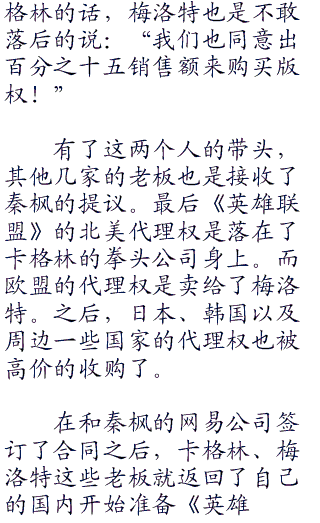 格林的话，梅洛特也是不敢
落后的说：“我们也同意出
百分之十五销售额来购买版
权！”
有了这两个人的带头，
其他几家的老板也是接收了
秦枫的提议。最后《英雄联
盟》的北美代理权是落在了
卡格林的拳头公司身上。而
欧盟的代理权是卖给了梅洛
特。之后，日本、韩国以及
周边一些国家的代理权也被
高价的收购了。
在和秦枫的网易公司签
订了合同之后，卡格林、梅
洛特这些老板就返回了自己
的国内开始准备《英雄